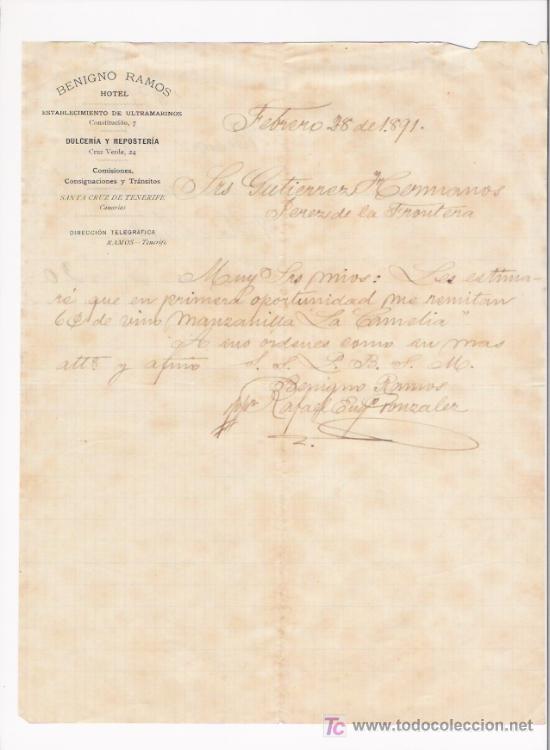 BENIGNO RAMOS
HOTEL
ESTABLECIMIENTO DE ULTRAMARINOS
Constitución, 7
DULCERÍA Y REPOSTERÍA
Cruz Verde, 24
Comisiones,
Consignaciones y Tránsitos
SANTA CRUZ DE TENERIFE
Canarias
DIRECCIÓN TELEGRÁFICA
RAMOS—Tenerife
Febrero 28 de 1891.
Srs Gutierrez Hermanos
Jerez de la Frontera
Muy Srs mios: Les estima-
ré que en primera oportunidad me remitan
de vino Manzanilla "La Camelia"
A sus ordenes como su mas
atto y afmo S. S. L. B. S. M.
Benigno Ramos
Rafael Gonzalez
todocoleccion
www.todocoleccion.net